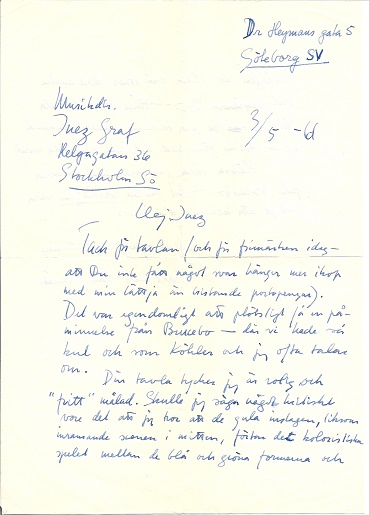 Dr Heymans gata 5
Göteborg SV
Musikdir.
Inez Graf
Helgagatan 36
Stockholm Sö
3/5 -61
Hej Inez
Tack för tavlan (och för frimärken idag –
att Du inte fått något svar hänger mer ihop
med min lättja än bristande portopengar).
Det var egendomligt att plötsligt få en på-
minnelse från – där vi hade så
kul och som Köhler och jag ofta talar
om. Din tavla tycker jag är rolig och
"fritt" målad. Skulle jag säga något kritiskt
vore det att jag tror att de gula inslagen, liksom
inramande scenen i mitten, förtar det koloristiska
spelet mellan de blå och gröna formerna och